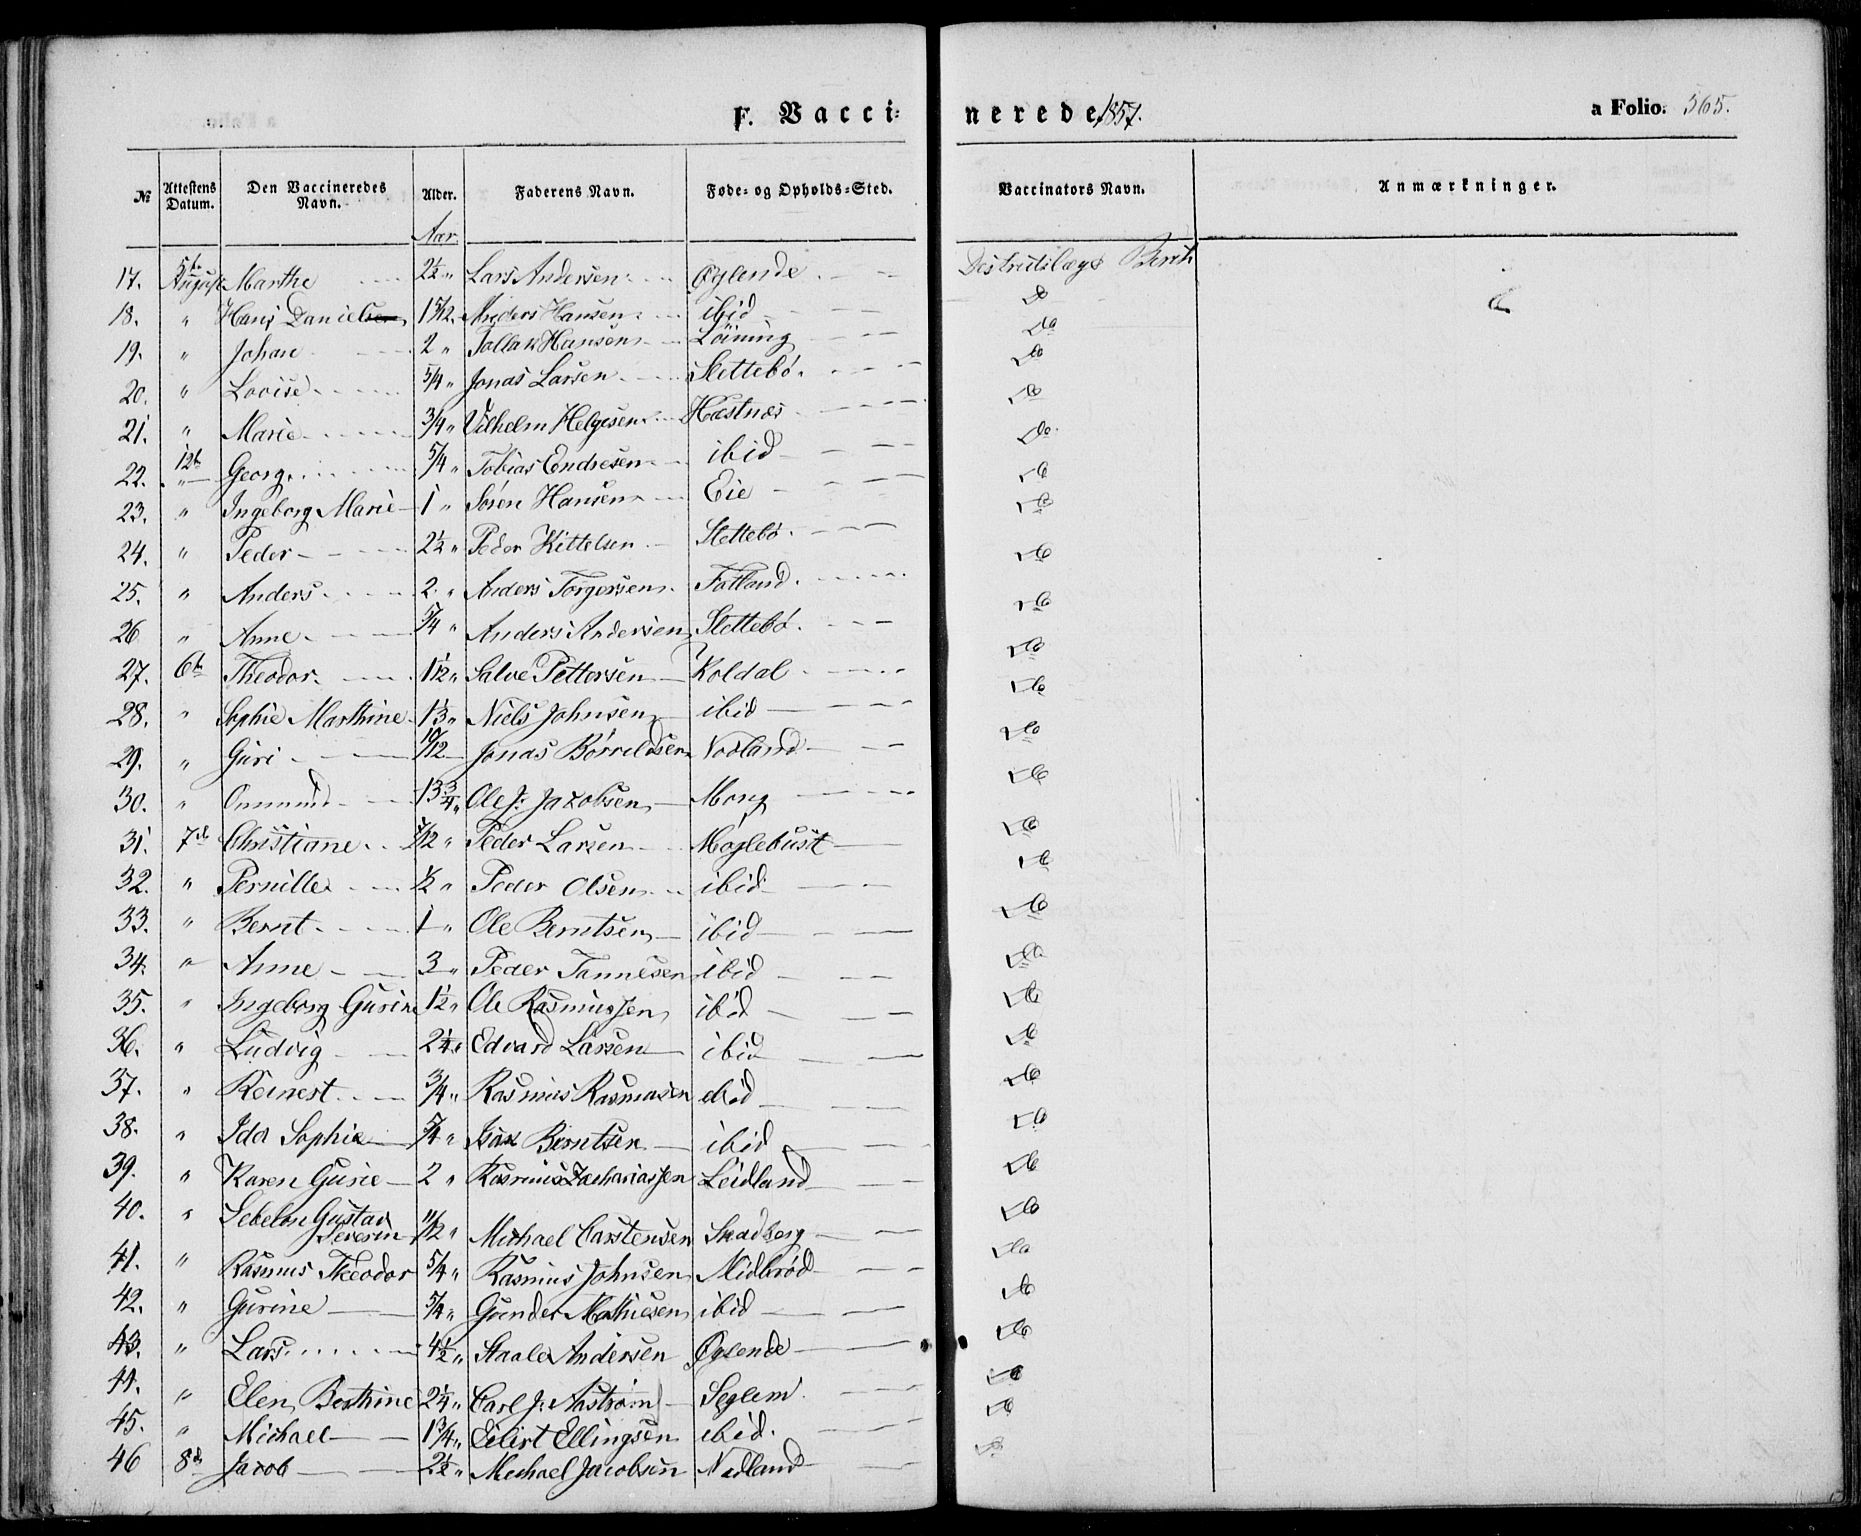 F. Vaccinerede 1857. a Folio. 565.
№ Attestens Datum. Den Vaccineredes Navn. Alder. Faderens Navn. Føde- og Opholds-Sted. Vaccinators Navn. Anmærkninger.
Aar
17. 5te August Marthe 2½ " Lars Andersen Øglende Destrictslæge
18. " Hans Danielsen 1 5/12 Anders Hansen ibid Do
19. " Johan 2 " Tollak Hansen Löining Do
20. " Lovise 5/4 " Jonas Larsen Slettebö Do
21. " Marie 3/4 " Vilhelm Helgesen Hæstnæs Do
22. 12te " Georg 5/4 " Tobias Endresen ibid Do
23. " Ingeborg Marie 1 " Sören Hansen Eie Do
24. " Peder 2½ " Peder Kittelsen Slettebö Do
25. " Anders 2 " Anders Torgersen Fotland Do
26 " Anne 5/4 " Anders Andersen Slettebö Do
27. 6te Theodor 1 1/12 " Salve Pettersen Koldal Do
28. " Sophie Marthine 1 1/3 " Niels Johnsen ibid Do
29. " Guri 10/12 Jonas Börrildsen Nodland Do
30. " Ommund 13 3/4 " Ole J. Jakobsen Mong Do
31. 7de Christiane /12 " Peder Larsen Möglebust Do
32. " Pernille ½ " Peder Olsen ibid Do
33. " Bernt 1 " Ole Berntsen ibid Do
34. " Anne 3 " Peder Tønnesen ibid Do
35. " Ingeborg Gurine 1½ " Ole Rasmussen ibid Do
36. " Ludvig 2¼ " Edvard Larsen ibid Do
37. " Reinert 3/4 " Rasmus Rasmusen ibid Do
38. " Ida Sophie 5/4 " Isak Berntsen ibid Do
39. " Karen Gurie 2 " Rasmus Zachariassen Leidland Do
40. " Gustav
Severin 11/12 " Michael Carstensen Skadberg Do
41. " Rasmus Theodor 5/4 " Rasmus Johnsen Midbrød Do
42. " Gurine 5/4 " Gunder Mathiesen ibid Do
43. " Lars 4½ " Staale Andersen Øglende Do
44. " Elen Berthine 2¼ " Carl J. Aaström Seglem Do
45. " Michael 1 3/4 " Eilert Ellingsen ibid. Do
46 8de Jakob 2½ " Michael Jacobsen Nodland Do